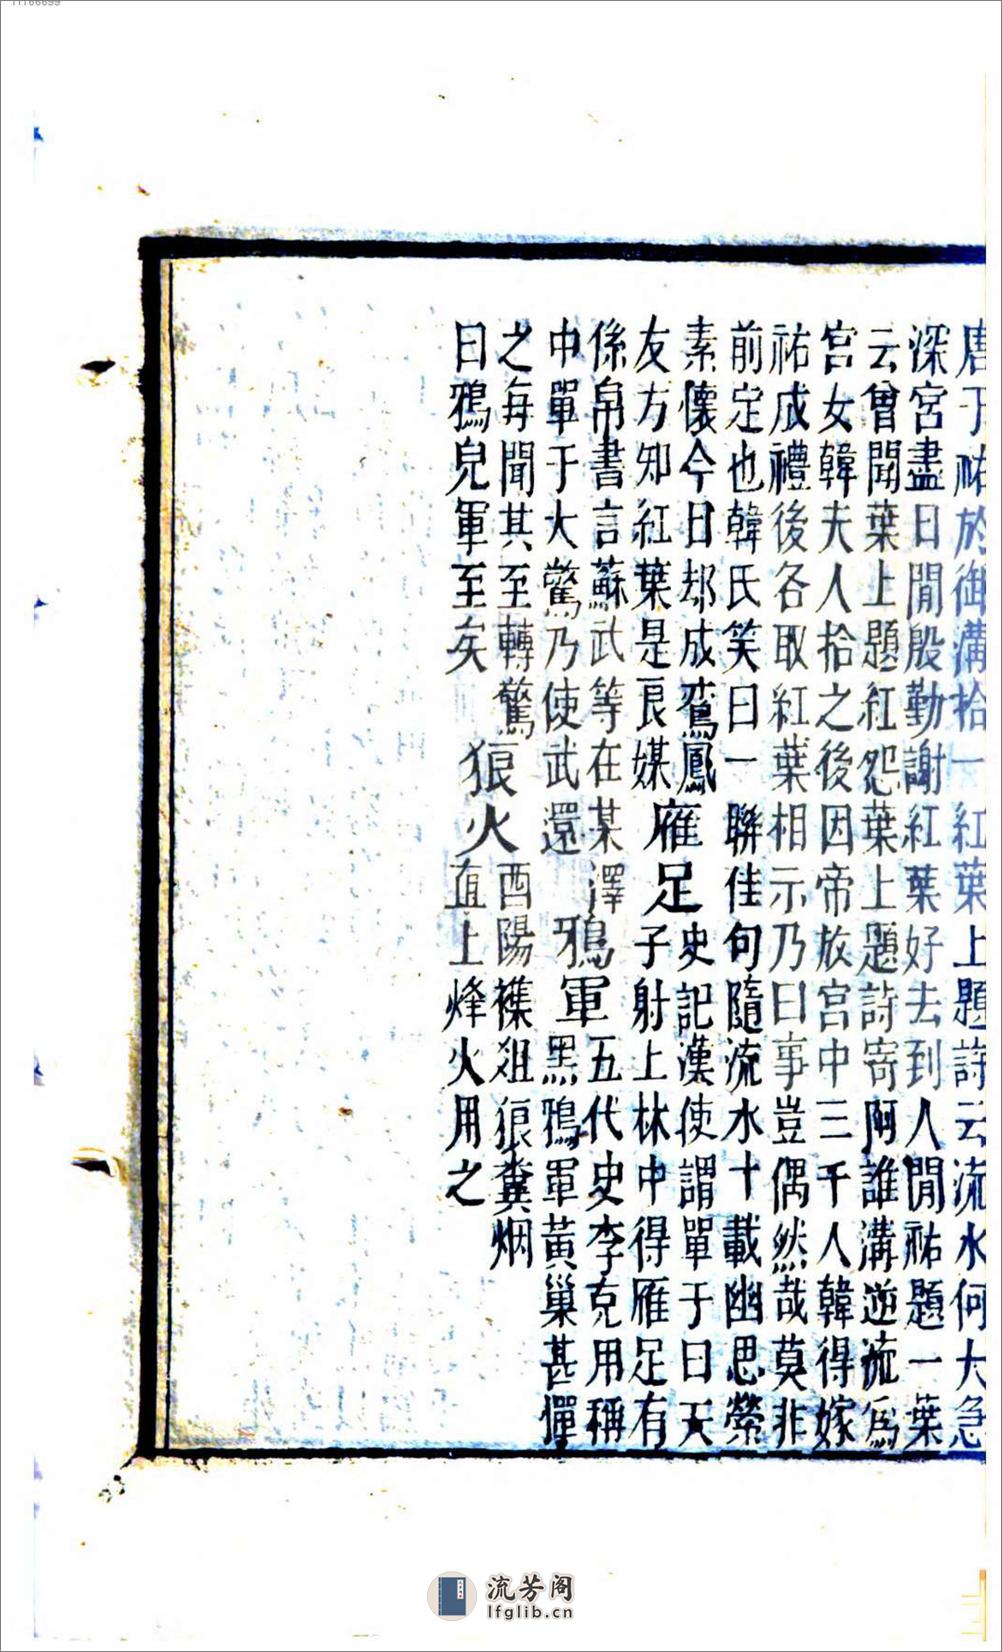 唐于祐於御溝拾一紅葉上題詩云流水何大急
深宮盡日閒殷勤謝紅葉好去到人閒祐題一葉
云曾聞葉上題紅怨葉上題詩寄阿誰溝逆流爲
宮女韓夫人拾之後因帝放宮中三千人韓得嫁
祐成禮後各取紅葉相示乃曰事豈偶然哉莫非
前定也韓氏笑曰一聯佳句隨流水十載幽思縈
素懷今日却成鸞鳳
友方知紅葉是良媒
雁足
史記漢使謂單于曰天
子射上林中得雁足有
係帛書言蘇武等在某澤
中單于大驚乃使武還
鴉軍
五代史李克用稱
黑鴉軍黃巢甚憚
之每聞其至轉驚
曰鴉兒軍至矣
狼火
酉陽襍俎狼糞烟
直上烽火用之
流芳阁
lfglib.cn